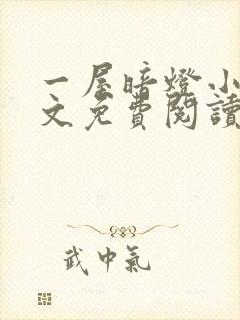 一屋暗燈小
文免費閱讀
武中氣